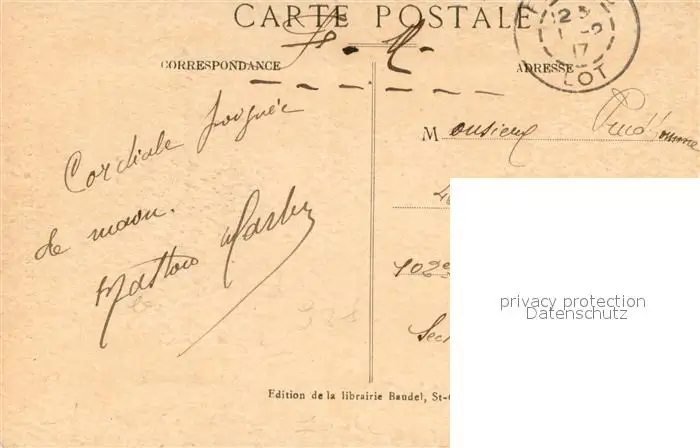 CARTE POSTALE
F. M.
CORRESPONDANCE
ADRESSE
23
17
LOT
Cordiale poignée
de main.
M onsieur Prud'homme
102e
Sec
privacy protection
Datenschutz
Edition de la librairie Baudel, St-